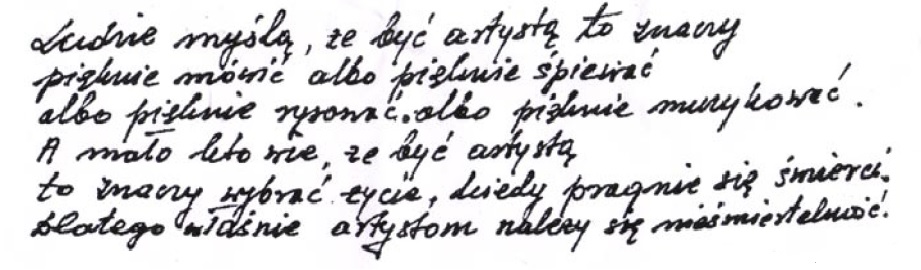 Ludzie myślą, że być artystą to znaczy
pięknie mówić albo pięknie śpiewać
albo pięknie rysować. albo pięknie muzykować.
A mało kto wie, że być artystą
to znaczy wybrać życie, kiedy pragnie się śmierci.
Dlatego właśnie artystom należy się nieśmiertelność.